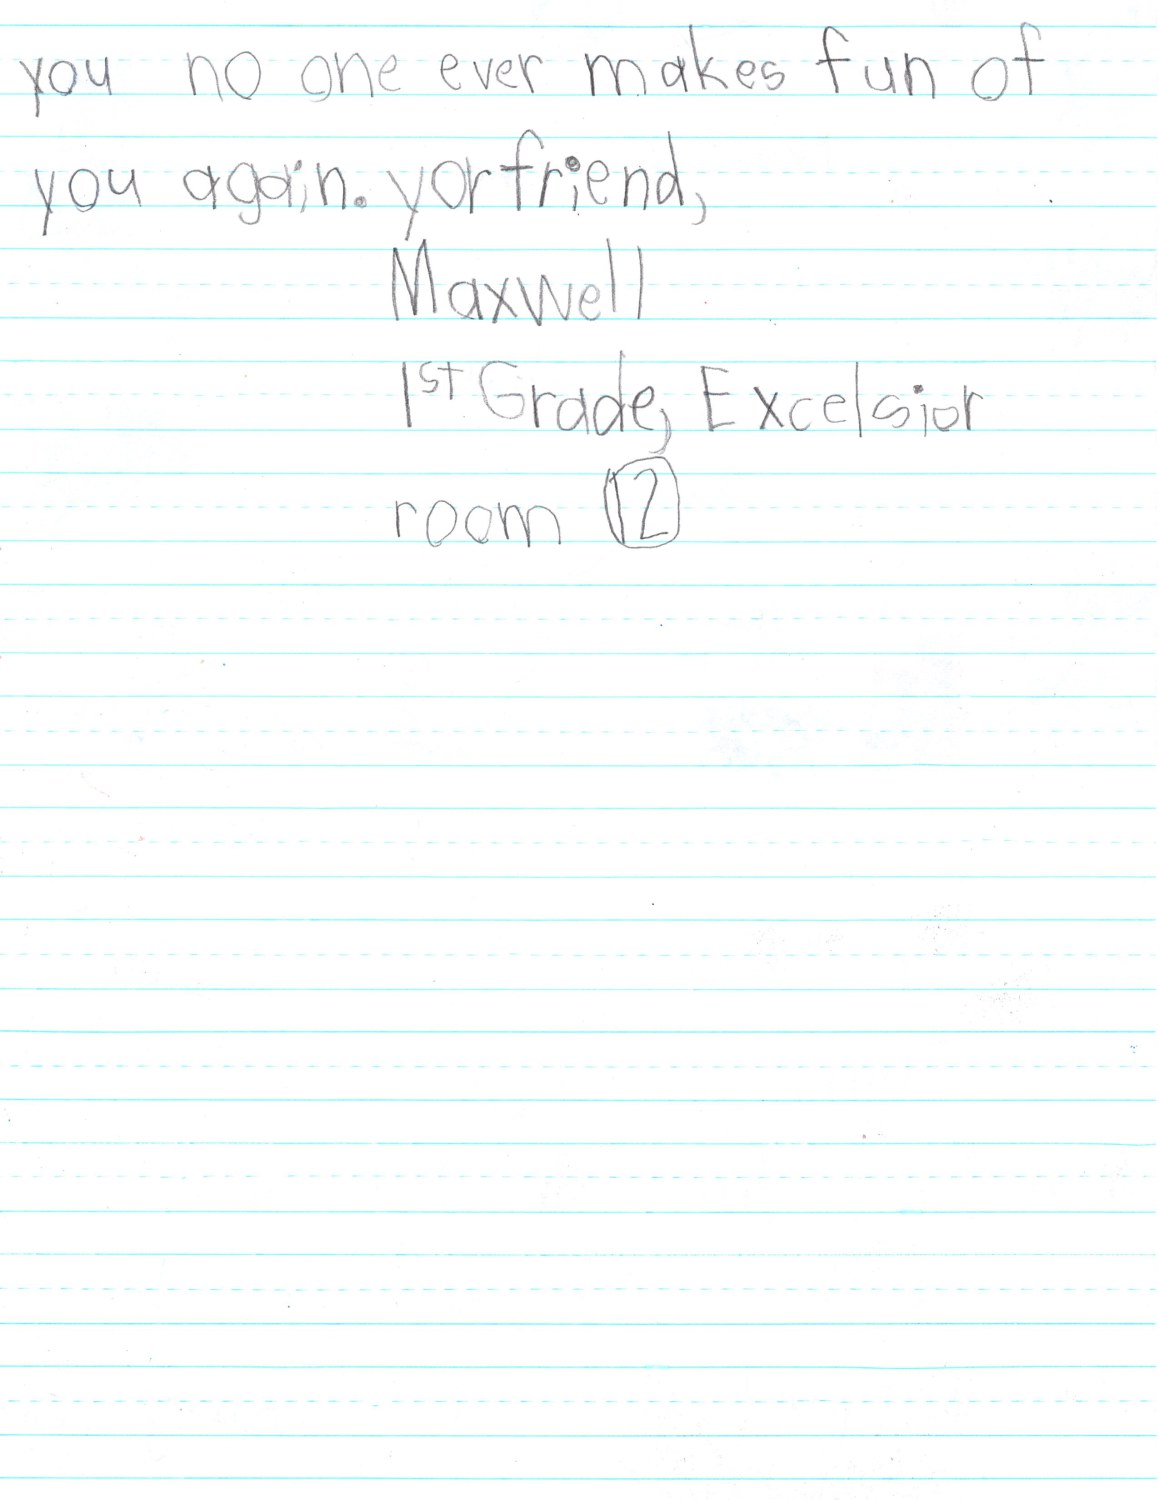 you no one ever makes fun of
you again. yor friend,
Maxwell
1st Grade, Excelsior
room 12